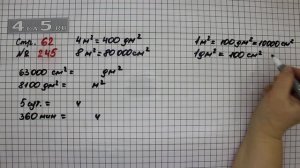 4A5.RU
Стр. 62
№ 245
4 м² = 400 дм²
8 м² = 80 000 см²
63000 см² = дм²
8100 дм² = м²
5 сут. = ч
360 мин = ч
1 м² = 100 дм² = 10000 см²
1 дм² = 100 см²